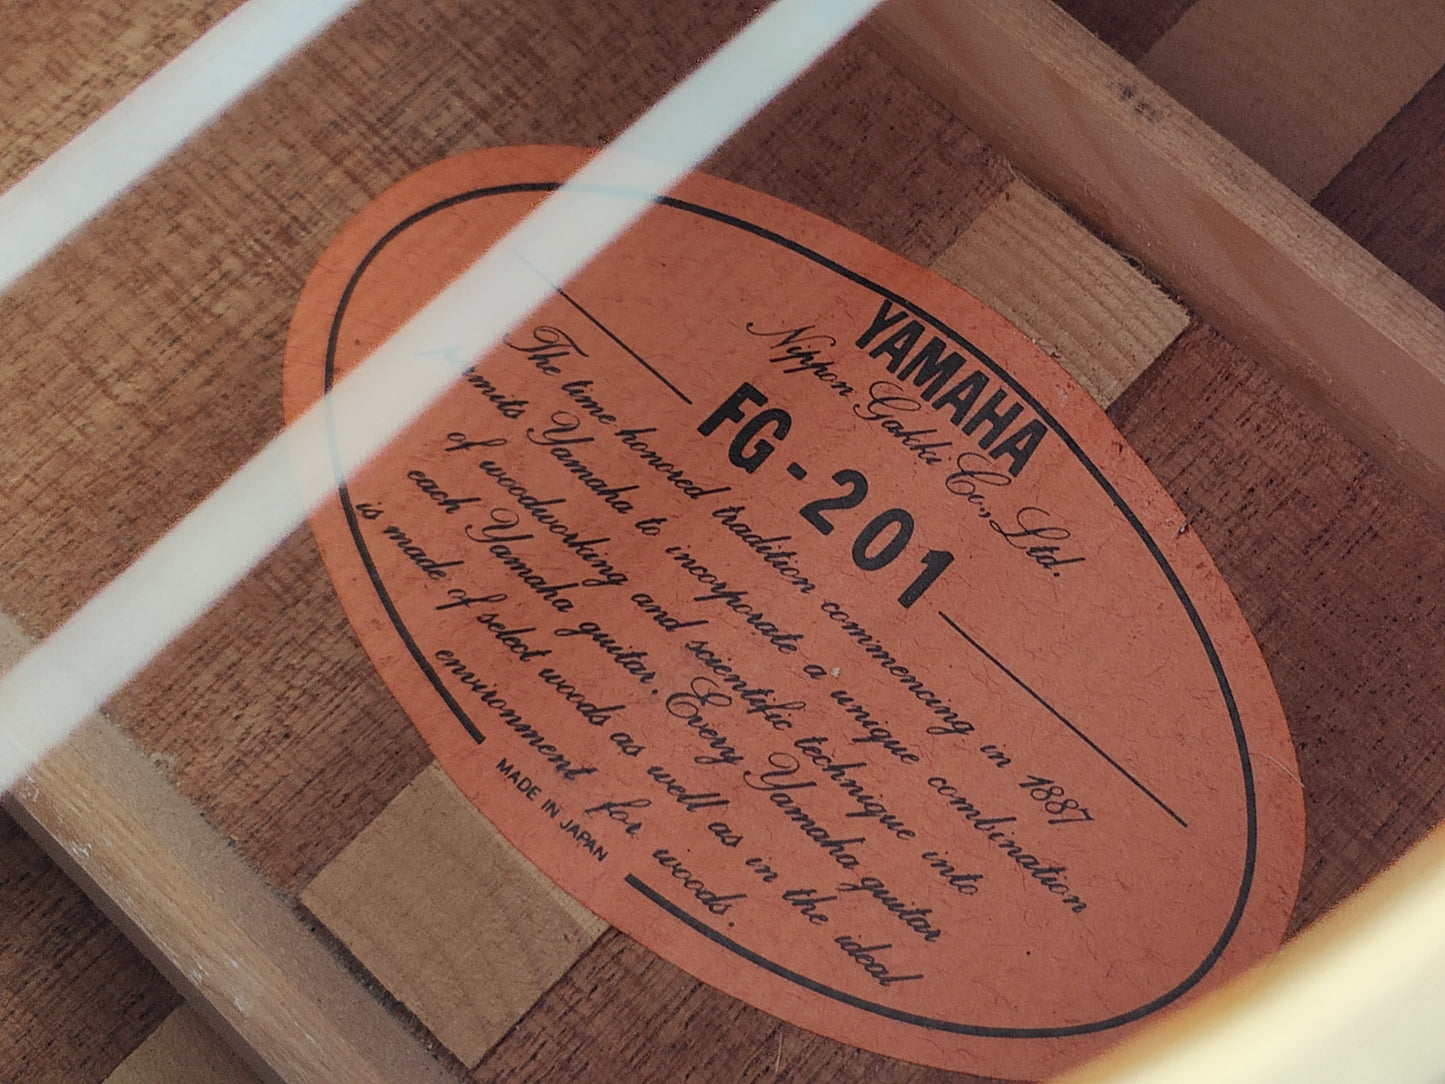 YAMAHA
Nippon Gakki Co., Ltd.
FG-201
The time honored tradition commencing in 1887
permits Yamaha to incorporate a unique combination
of woodworking and scientific technique into
each Yamaha guitar. Every Yamaha guitar
is made of select woods as well as in the ideal
environment for woods.
MADE IN JAPAN